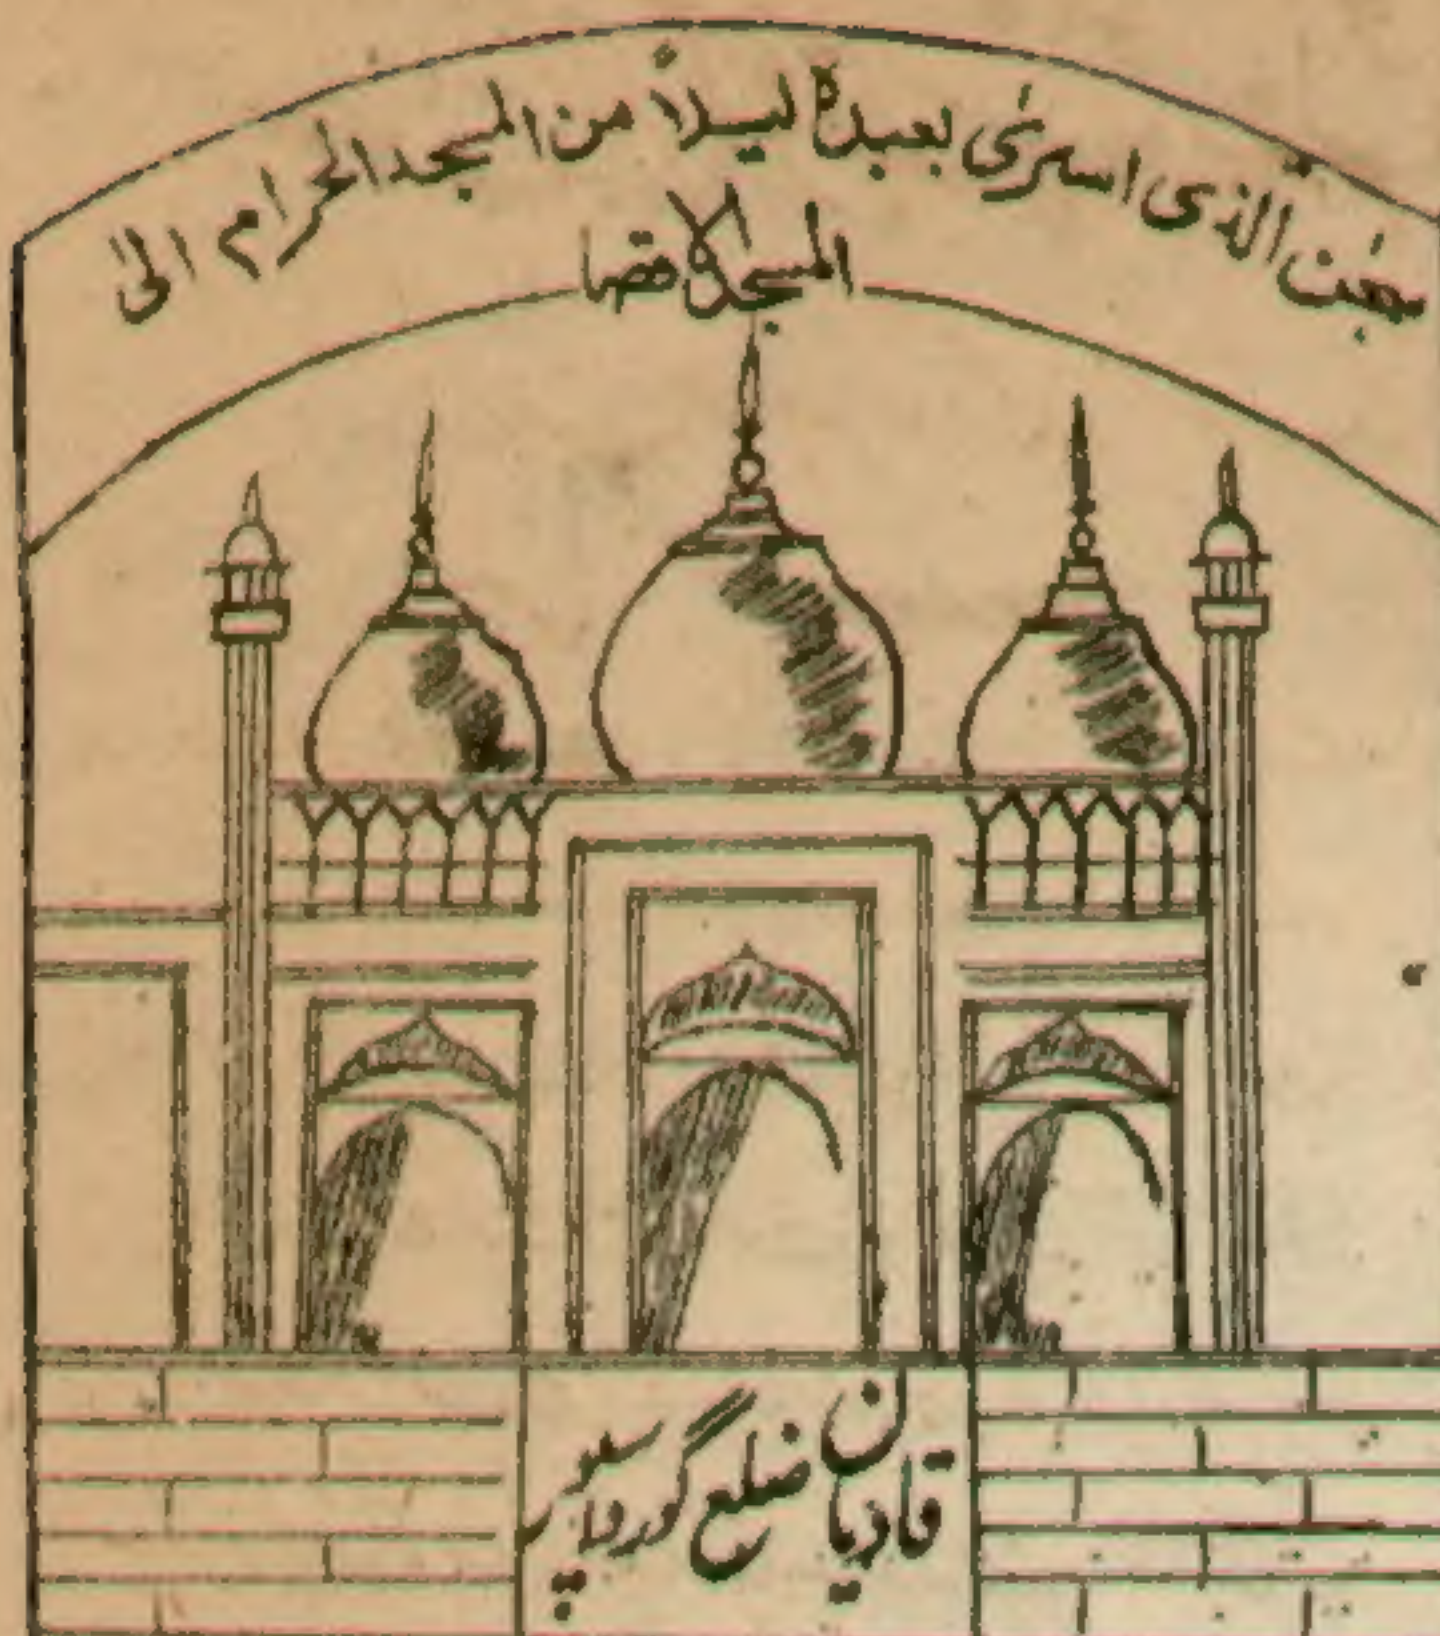 سبحٰن الذی اسریٰ بعبدہٖ لیلاً من المسجد الحرام الیٰ
المسجد الاقصا
قادیان ضلع گورداسپور